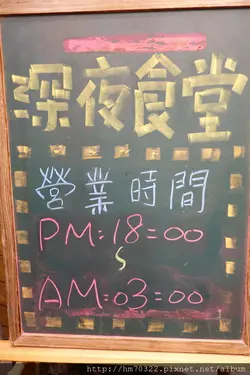 深夜食堂
營業時間
PM:18=00
S
AM:03=00
http://hm70322.pixnet.net/album